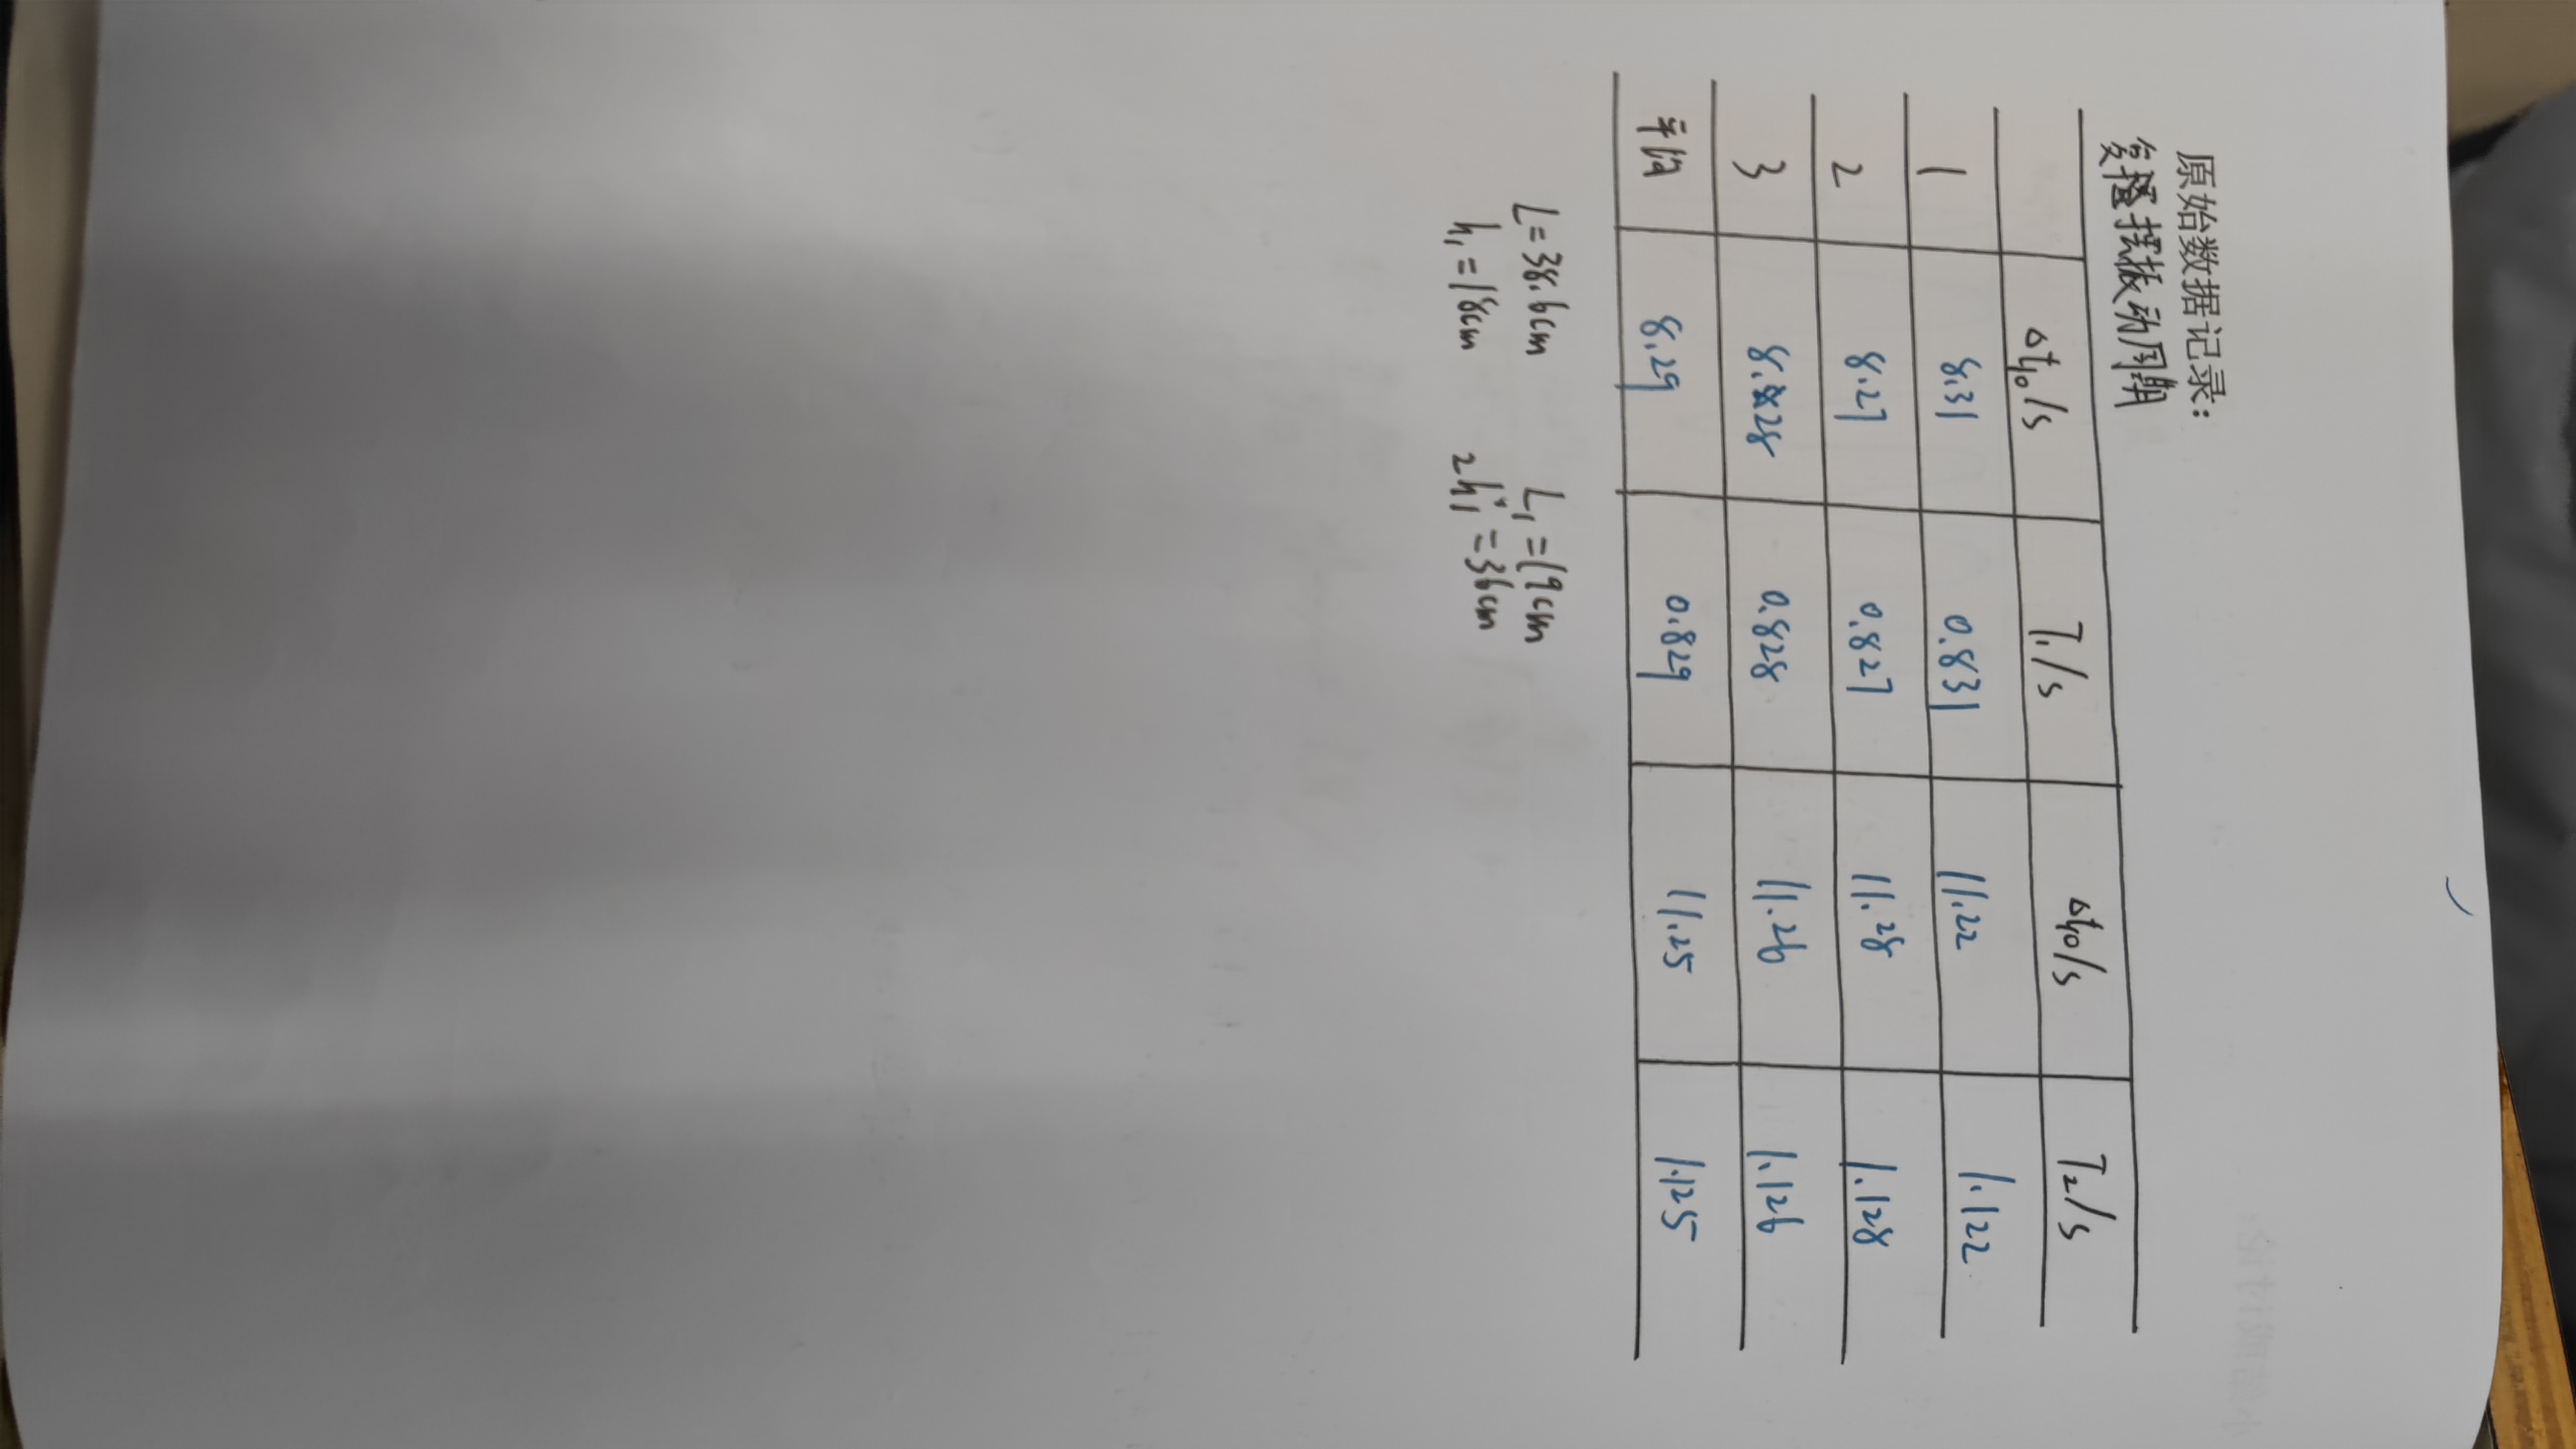 原始数据记录:
复摆摆振动周期
Δt₁₀/s T₁/s Δt₁₀/s T₂/s
1 8.31 0.831 11.22 1.122
2 8.27 0.827 11.28 1.128
3 8.28 0.828 11.26 1.126
平均 8.29 0.829 11.25 1.125
L=38.6cm L₁=19cm
h₁=18cm 2h₁=36cm